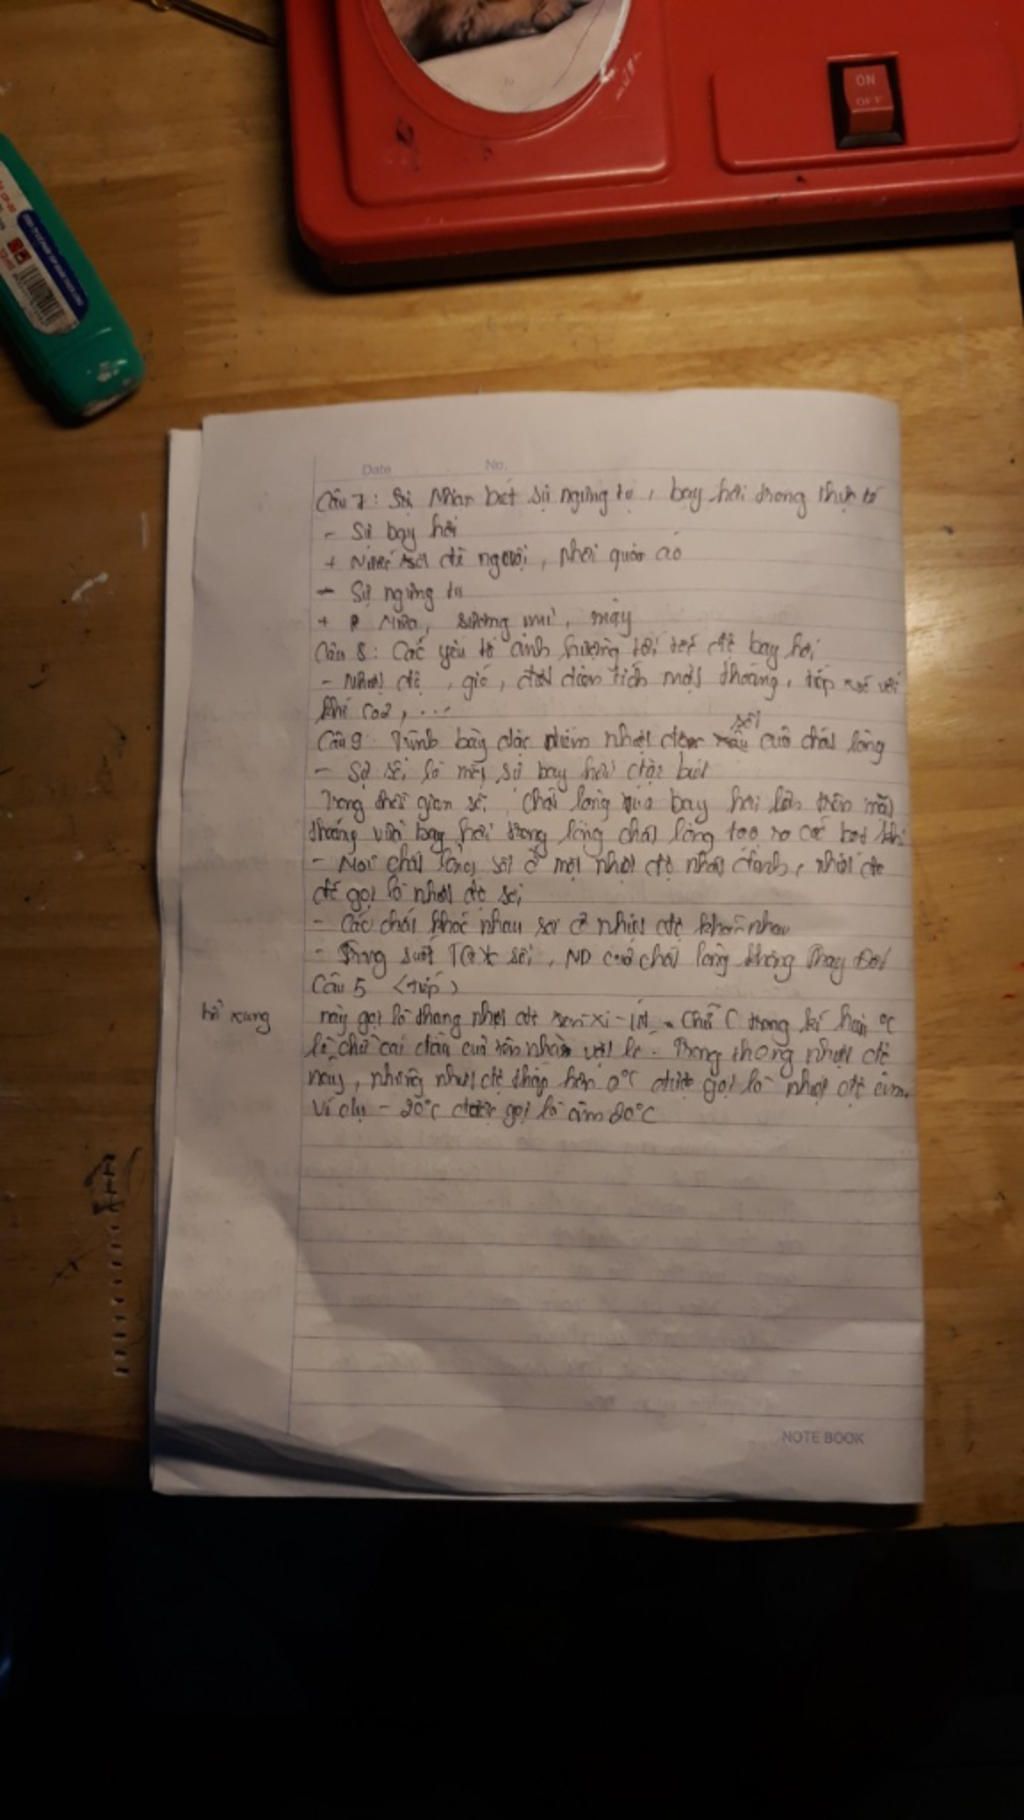 ON
OFF
Date No.
Câu 7: Sự Nhận biết sự ngưng tụ, bay hơi trong thực tế
- Sự bay hơi
+ Nước sôi để nguội, phơi quần áo
- Sự ngưng tụ
+ Mưa, sương mù, mây
Câu 8: Các yếu tố ảnh hưởng tới tốc độ bay hơi
- Nhiệt độ, gió, diện tích mặt thoáng, tiếp xúc với
khí CO2, ...
sôi
Câu 9: Trình bày đặc điểm nhiệt độ của chất lỏng
- Sự sôi là một sự bay hơi đặc biệt
Trong thời gian sôi, chất lỏng vừa bay hơi lên trên mặt
thoáng vừa bay hơi trong lòng chất lỏng tạo ra các bọt khí
- Mỗi chất lỏng sôi ở một nhiệt độ nhất định, nhiệt độ
đó gọi là nhiệt độ sôi
- Các chất khác nhau sôi ở nhiệt độ khác nhau
- Trong suốt sôi, ND của chất lỏng không thay đổi
Câu 5 (tiếp)
bổ sung
này gọi là thang nhiệt độ xen-xi-ut. Chữ C trong kí hiệu °C
là chữ cái đầu của tên nhà vật lí. Trong thang nhiệt độ
này, những nhiệt độ thấp hơn 0°C được gọi là nhiệt độ âm.
Ví dụ -20°C được gọi là âm 20°C
NOTE BOOK